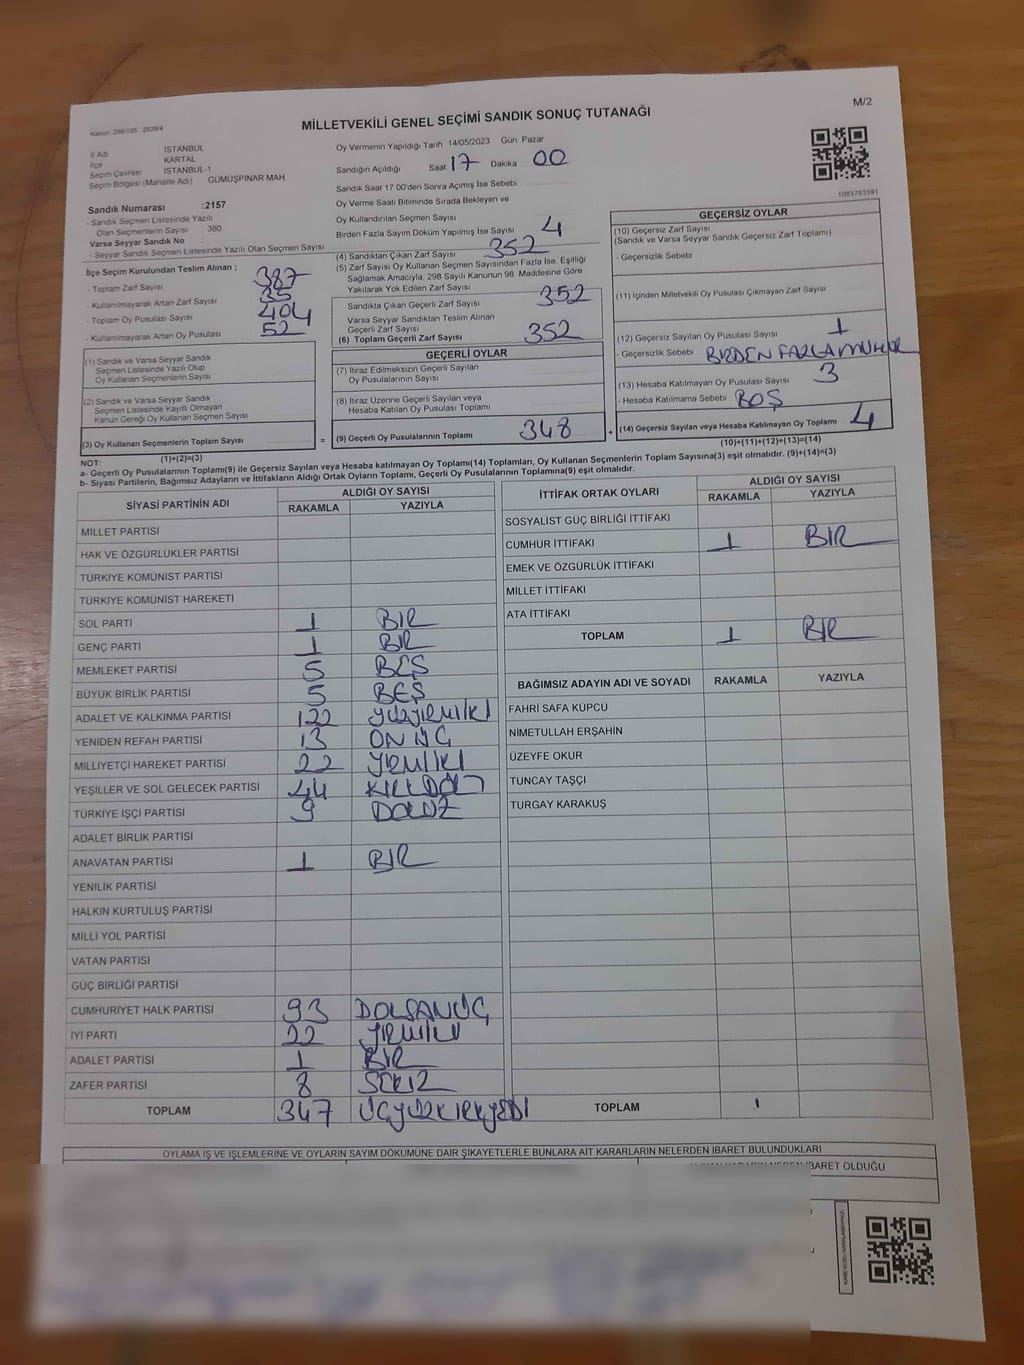 MİLLETVEKİLİ GENEL SEÇİMİ SANDIK SONUÇ TUTANAĞI
M/2
İl Adı İSTANBUL
İlçe KARTAL
Seçim Çevresi İSTANBUL-1
Seçim Bölgesi (Mahalle Adı) GÜMÜŞPINAR MAH
Oy Vermenin Yapıldığı Tarih 14/05/2023 Gün: Pazar
Sandığın Açıldığı Saat 17 Dakika 00
Sandık Saat 17:00'den Sonra Açımış İse Sebebi
Oy Verme Saati Bitiminde Sırada Bekleyen ve
Oy Kullandırılan Seçmen Sayısı
Birden Fazla Sayım Döküm Yapılmış İse Sayısı 4
1083783391
Sandık Numarası :2157
- Sandık Seçmen Listesinde Yazılı
Olan Seçmenlerin Sayısı 380
Varsa Seyyar Sandık No :
- Seyyar Sandık Seçmen Listesinde Yazılı Olan Seçmen Sayısı
İlçe Seçim Kurulundan Teslim Alınan ;
- Toplam Zarf Sayısı 387
- Kullanılmayarak Artan Zarf Sayısı 35
- Toplam Oy Pusulası Sayısı 404
- Kullanılmayarak Artan Oy Pusulası 52
(1) Sandık ve Varsa Seyyar Sandık
Seçmen Listesinde Yazılı Olup
Oy Kullanan Seçmenlerin Sayısı
(2) Sandık ve Varsa Seyyar Sandık
Seçmen Listesinde Kayıtlı Olmayan
Kanun Gereği Oy Kullanan Seçmen Sayısı
(3) Oy Kullanan Seçmenlerin Toplam Sayısı =
(1)+(2)=(3)
(4) Sandıktan Çıkan Zarf Sayısı 352
(5) Zarf Sayısı Oy Kullanan Seçmen Sayısından Fazla İse, Eşitliği
Sağlamak Amacıyla, 298 Sayılı Kanunun 98. Maddesine Göre
Yakılarak Yok Edilen Zarf Sayısı
Sandıkta Çıkan Geçerli Zarf Sayısı 352
Varsa Seyyar Sandıktan Teslim Alınan
Geçerli Zarf Sayısı
(6) Toplam Geçerli Zarf Sayısı 352
GEÇERLİ OYLAR
(7) İtiraz Edilmeksizin Geçerli Sayılan
Oy Pusulalarının Sayısı
(8) İtiraz Üzerine Geçerli Sayılan veya
Hesaba Katılan Oy Pusulası Toplamı
(9) Geçerli Oy Pusulalarının Toplamı 348 +
GEÇERSİZ OYLAR
(10) Geçersiz Zarf Sayısı
(Sandık ve Varsa Seyyar Sandık Geçersiz Zarf Toplamı)
- Geçersizlik Sebebi
(11) İçinden Milletvekili Oy Pusulası Çıkmayan Zarf Sayısı
(12) Geçersiz Sayılan Oy Pusulası Sayısı 1
- Geçersizlik Sebebi BİRDEN FAZLA MÜHÜR
(13) Hesaba Katılmayan Oy Pusulası Sayısı 3
- Hesaba Katılmama Sebebi BOŞ
(14) Geçersiz Sayılan veya Hesaba Katılmayan Oy Toplamı 4
(10)+(11)+(12)+(13)=(14)
NOT:
a- Geçerli Oy Pusulalarının Toplamı(9) ile Geçersiz Sayılan veya Hesaba katılmayan Oy Toplamı(14) Toplamları, Oy Kullanan Seçmenlerin Toplam Sayısına(3) eşit olmalıdır. (9)+(14)=(3)
b- Siyasi Partilerin, Bağımsız Adayların ve İttifakların Aldığı Ortak Oyların Toplamı, Geçerli Oy Pusulalarının Toplamına(9) eşit olmalıdır.
SİYASİ PARTİNİN ADI ALDIĞI OY SAYISI
RAKAMLA YAZIYLA
MİLLET PARTİSİ
HAK VE ÖZGÜRLÜKLER PARTİSİ
TÜRKİYE KOMÜNİST PARTİSİ
TÜRKİYE KOMÜNİST HAREKETİ
SOL PARTİ 1 BİR
GENÇ PARTİ 1 BİR
MEMLEKET PARTİSİ 5 BEŞ
BÜYÜK BİRLİK PARTİSİ 5 BEŞ
ADALET VE KALKINMA PARTİSİ 122 YÜZYİRMİİKİ
YENİDEN REFAH PARTİSİ 13 ONÜÇ
MİLLİYETÇİ HAREKET PARTİSİ 22 YİRMİİKİ
YEŞİLLER VE SOL GELECEK PARTİSİ 44 KIRKDÖRT
TÜRKİYE İŞÇİ PARTİSİ 9 DOKUZ
ADALET BİRLİK PARTİSİ
ANAVATAN PARTİSİ 1 BİR
YENİLİK PARTİSİ
HALKIN KURTULUŞ PARTİSİ
MİLLİ YOL PARTİSİ
VATAN PARTİSİ
GÜÇ BİRLİĞİ PARTİSİ
CUMHURİYET HALK PARTİSİ 93 DOKSANÜÇ
İYİ PARTİ 22 YİRMİİKİ
ADALET PARTİSİ 1 BİR
ZAFER PARTİSİ 8 SEKİZ
TOPLAM 347 ÜÇYÜZKIRKYEDİ
İTTİFAK ORTAK OYLARI ALDIĞI OY SAYISI
RAKAMLA YAZIYLA
SOSYALİST GÜÇ BİRLİĞİ İTTİFAKI
CUMHUR İTTİFAKI 1 BİR
EMEK VE ÖZGÜRLÜK İTTİFAKI
MİLLET İTTİFAKI
ATA İTTİFAKI
TOPLAM 1 BİR
BAĞIMSIZ ADAYIN ADI VE SOYADI RAKAMLA YAZIYLA
FAHRİ SAFA KÜPCÜ
NİMETULLAH ERŞAHİN
ÜZEYFE OKUR
TUNCAY TAŞÇI
TURGAY KARAKUŞ
TOPLAM
OYLAMA İŞ VE İŞLEMLERİNE VE OYLARIN SAYIM DÖKÜMÜNE DAİR ŞİKAYETLERLE BUNLARA AİT KARARLARIN NELERDEN İBARET BULUNDUKLARI
İBARET OLDUĞU